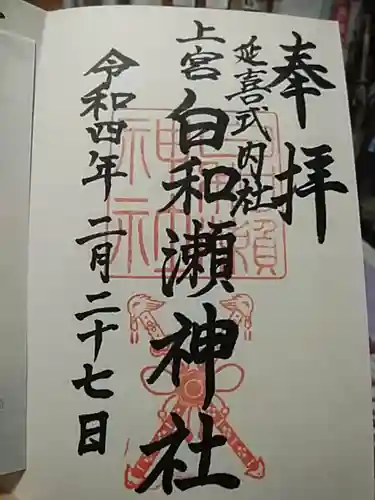 奉拝
延喜式内社
上宮
白和瀬神社
令和四年二月二十七日